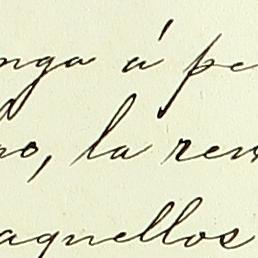 nga á pe
no, la ren
aquellos